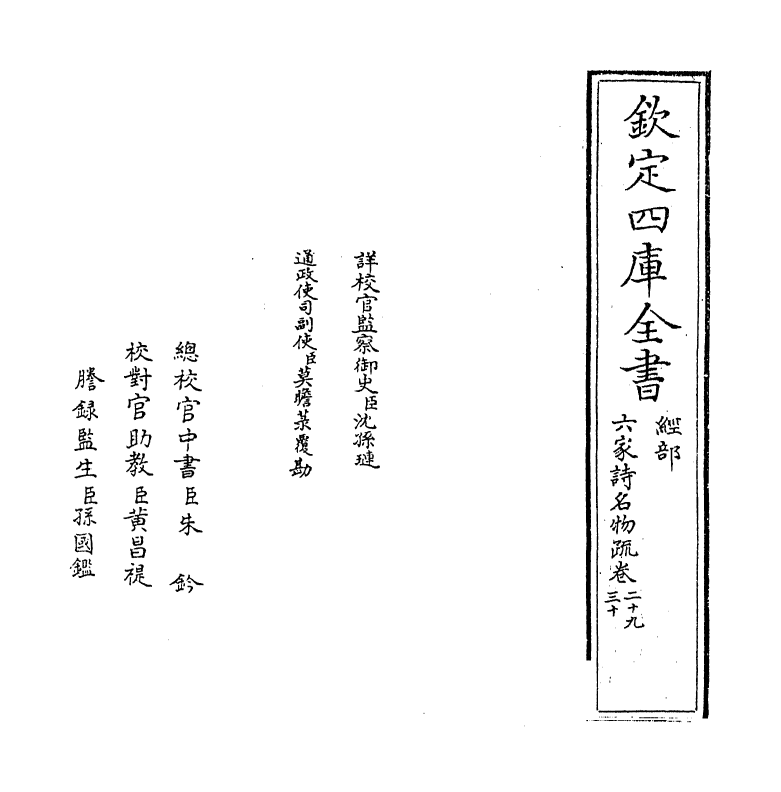 欽定四庫全書
經部
六家詩名物疏卷二十九
三十
詳校官監察御史臣沈孫璉
通政使司副使臣莫瞻菉覆勘
總校官中書臣朱鈐
校對官助教臣黄昌禔
謄録監生臣孫國鑑